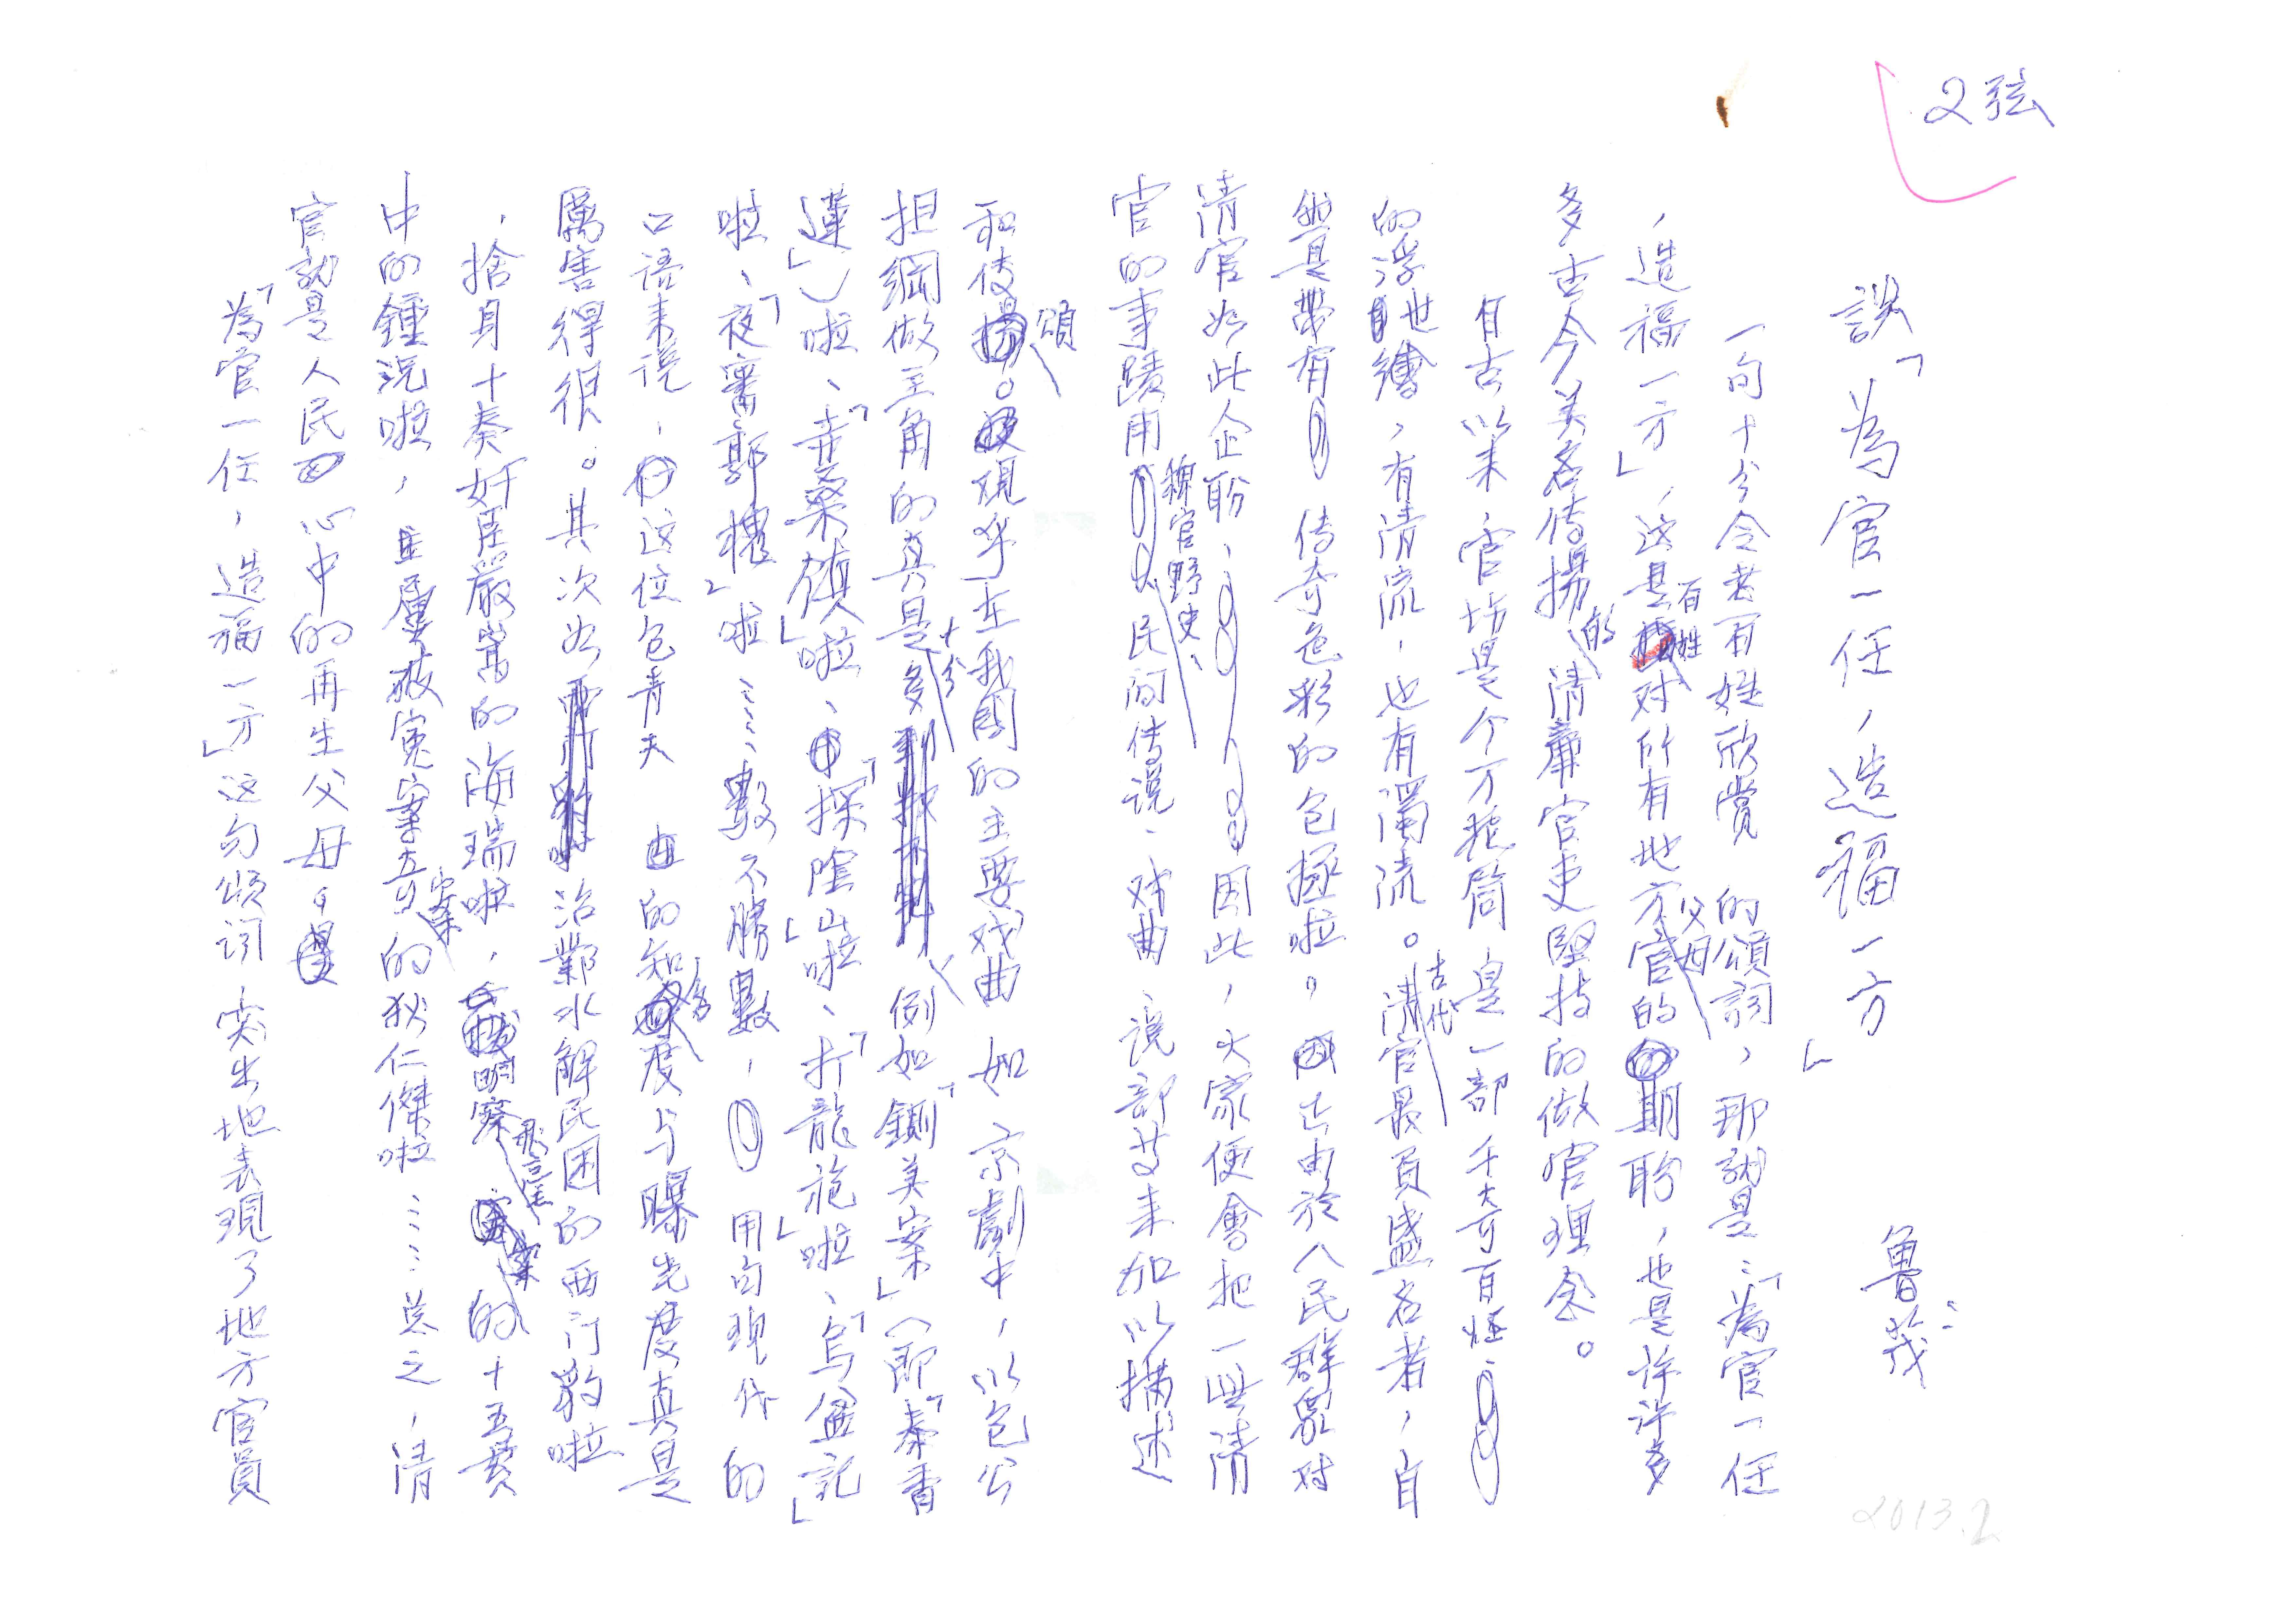 2弦
談「為官一任，造福一方」
魯茂
一句十分令老百姓欣赏的頌詞，那就是：「為官一任
，造福一方」，这是百姓对所有地方父母官的期盼，也是许许多
多古今美名传揚的清廉官吏堅持的做官理念。
自古以来，官场是个万花筒，是一部千奇百怪
的浮世繪，有清流，也有濁流。古代清官最負盛名者，自
然是帶有传奇色彩的包拯啦。由於人民群眾对
清官如此企盼，因此，大家便會把一些清
官的事蹟用稗官野史、民间传说、戏曲、说部等来加以描述
和传頌。現存在我國的主要戏曲如京劇中，以包公
担綱做主角的真是十分多，例如「鍘美案」（即「秦香
蓮」）啦、「弃桑鎮」啦、「探陰山」啦、「打龍袍」啦、「烏盆記」
啦、「夜審郭槐」啦……，數不勝數，用句現代的
口语来说，这位包青天的知名度与曝光度真是
厲害得很。其次如治鄴水解民困的西门豹啦
，捨身十奏奸臣嚴嵩的海瑞啦，明察飛[…]案的十五貫
中的鍾况啦，且屢破寃案奇案的狄仁傑啦……总之，清
官就是人民心中的再生父母。
「為官一任，造福一方」这句頌词，突出地表現了地方官員
2013.2